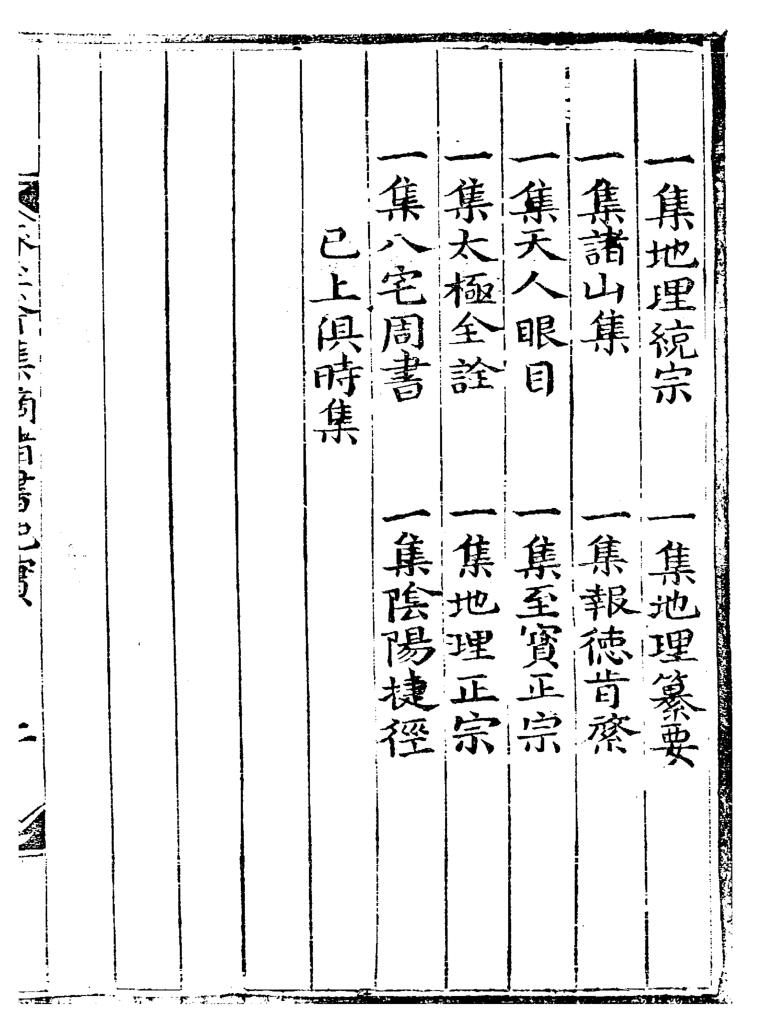 一集地理統宗　一集地理纂要
一集諸山集　一集報德肯綮
一集天人眼目　一集至寶正宗
一集太極全詮　一集地理正宗
一集八宅周書　一集陰陽捷徑
已上俱時集
集摘
書